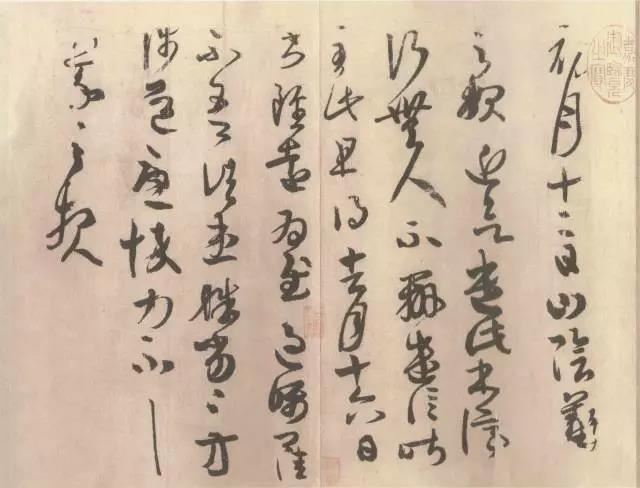 初月十二日山陰羲
之報近欲遣此書停
行無人不辦遣信昨
至此且得去月十六日
書雖遠為慰過囑卿佳
不吾諸患殊劣〻方
涉道憂悴力不具
羲之報
嘉慶御覽之寶